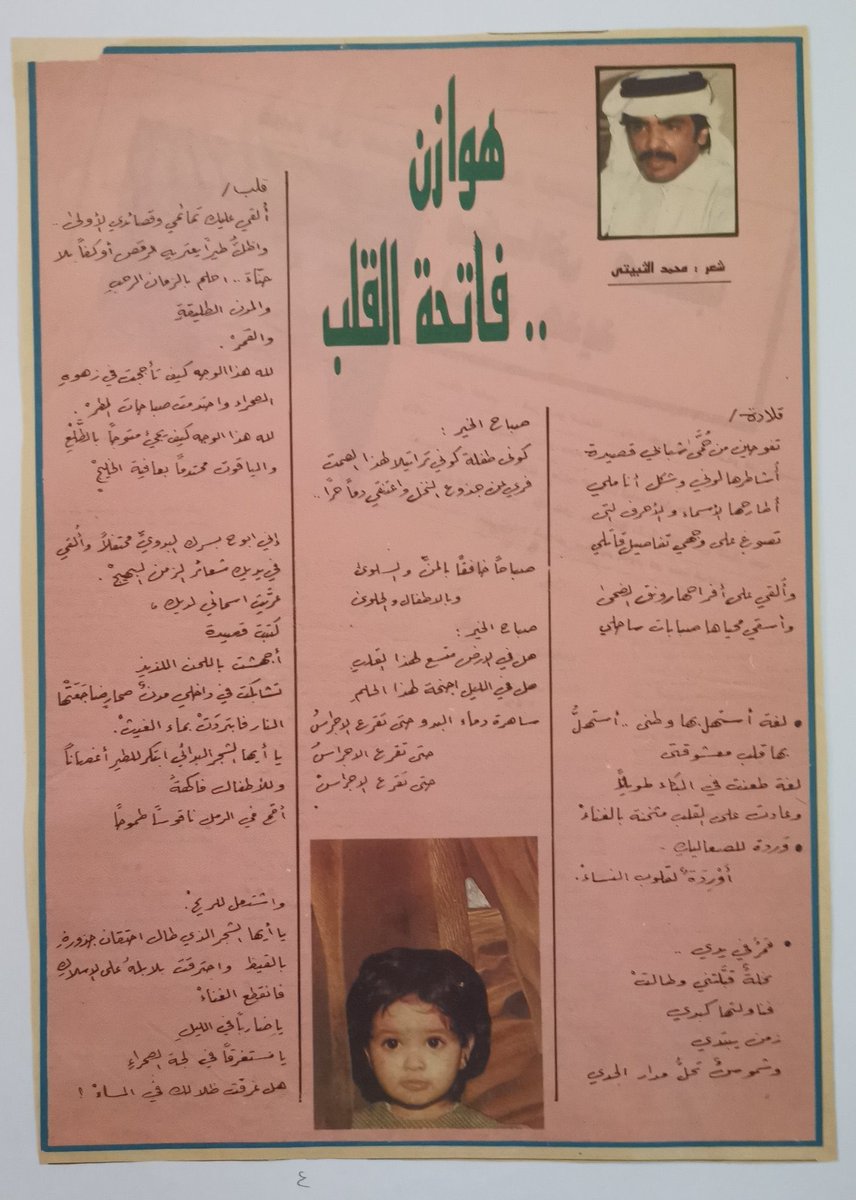 هوازن
.. فاتحة القلب
شعر : محمد الثبيتي
قلادة /
تفوحين من حُمَّى اشتهائي قصيدة
أُشاطرها لوني وشكل أناملي
أطارحها الأسماء والأحرف التي
تصوغ على وجهي تفاصيل قاتلي
وأُلقي على أفراحها رونق الضحى
وأسقي محياها صبابات ساحلي
• لغة أستهل بها وطني .. أستهلُّ
بها قلب معشوقتي
لغة طعنت في البكاء طويلاً
وعادت على القلب مثخنة بالغناءْ
• وردة للصعاليك
أوْرِدَةٌ لقلوب النساءْ .
• قمرٌ في يدي ..
نخلةٌ قبَّلتني وطالتْ
فناولتها كبدي
زمن يبتدي
وشموسٌ تحلُّ مدار الجدي
صباح الخير :
كوني طفلة كوني تراتيلا لهذا الصمت
فري من جذوع النخل واعتنقي دماً حرّا ..
صباحاً خافقاً بالمنّ والسلوى
وبالأطفال والحلوى
صباح الخير :
هل في الأرض متسع لهذا القلب
هل في الليل اجنحة لهذا الحلم
ساهرة دماء البدو حتى تقرع الاجراسُ
حتى تقرع الاجراسُ
حتى تقرع الاجراسْ .
قلب /
أُلقي عليك تمائمي وقصائدي الأولى ..
واظلُّ طيراً يعتريه الرقص أو كفاً بلا
حنّاء .. احلم بالزمان الرحبِ
والمدن الطليقةِ
والقمرْ .
لله هذا الوجه كيف تأججت في زهوهِ
الصحراء واحتدمت صباحات المطرْ .
لله هذا الوجه كيف يجيء متوجاً بالطَّلْعِ
والياقوت محتدماً بعافية الخليجْ
إني ابوح بسرك البدويِّ محتفلاً وأُلقي
في يديك شعائر الزمن البهيجْ .
عرَّيتِ اسمائي لديك ،
كتبت قصيدة
أجهشت باللحن اللذيذِ
تشابكت في داخلي مدنٌ صحارٍ ضاجَعَتْها
النار فابتردَتْ بماء الغيثْ .
يا أيها الشجر البدائي ابتكر للطير أغصاناً
وللأطفال فاكهةً
أقم في الرمل ناقوساً طموحاً
واشتعل للريحْ .
يا أيها الشجر الذي طال احتقان جذورهِ
بالقيظ واحترقت بلابلهُ على الاسلاكِ
فانقطع الغناءْ
يا ضارباً في الليلِ
يا مستغرقاً في لجة الصحراءِ
هل غرقت ظلالك في المساءْ !
٤